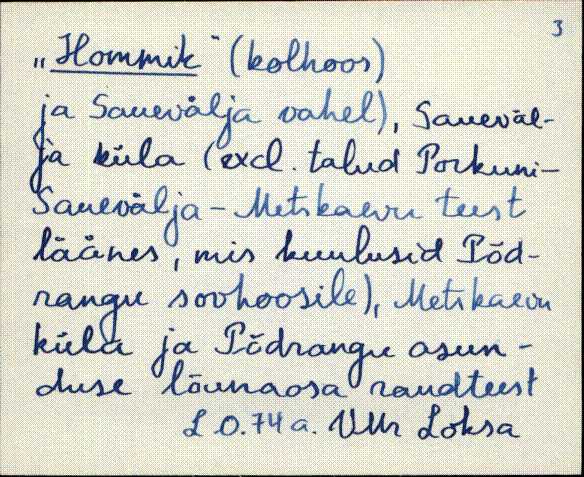 3
„Hommik" (kolhoos)
ja Sauevälja vahel), Saueväl-
ja küla (excl. talud Porkuni-
Sauevälja - Metskaevu teest
läänes, mis kuulusid Põd-
rangu sovhoosile), Metskaevu
küla ja Põdrangu asun-
duse lõunaosa raudteest
L O.74a. VMr Loksa